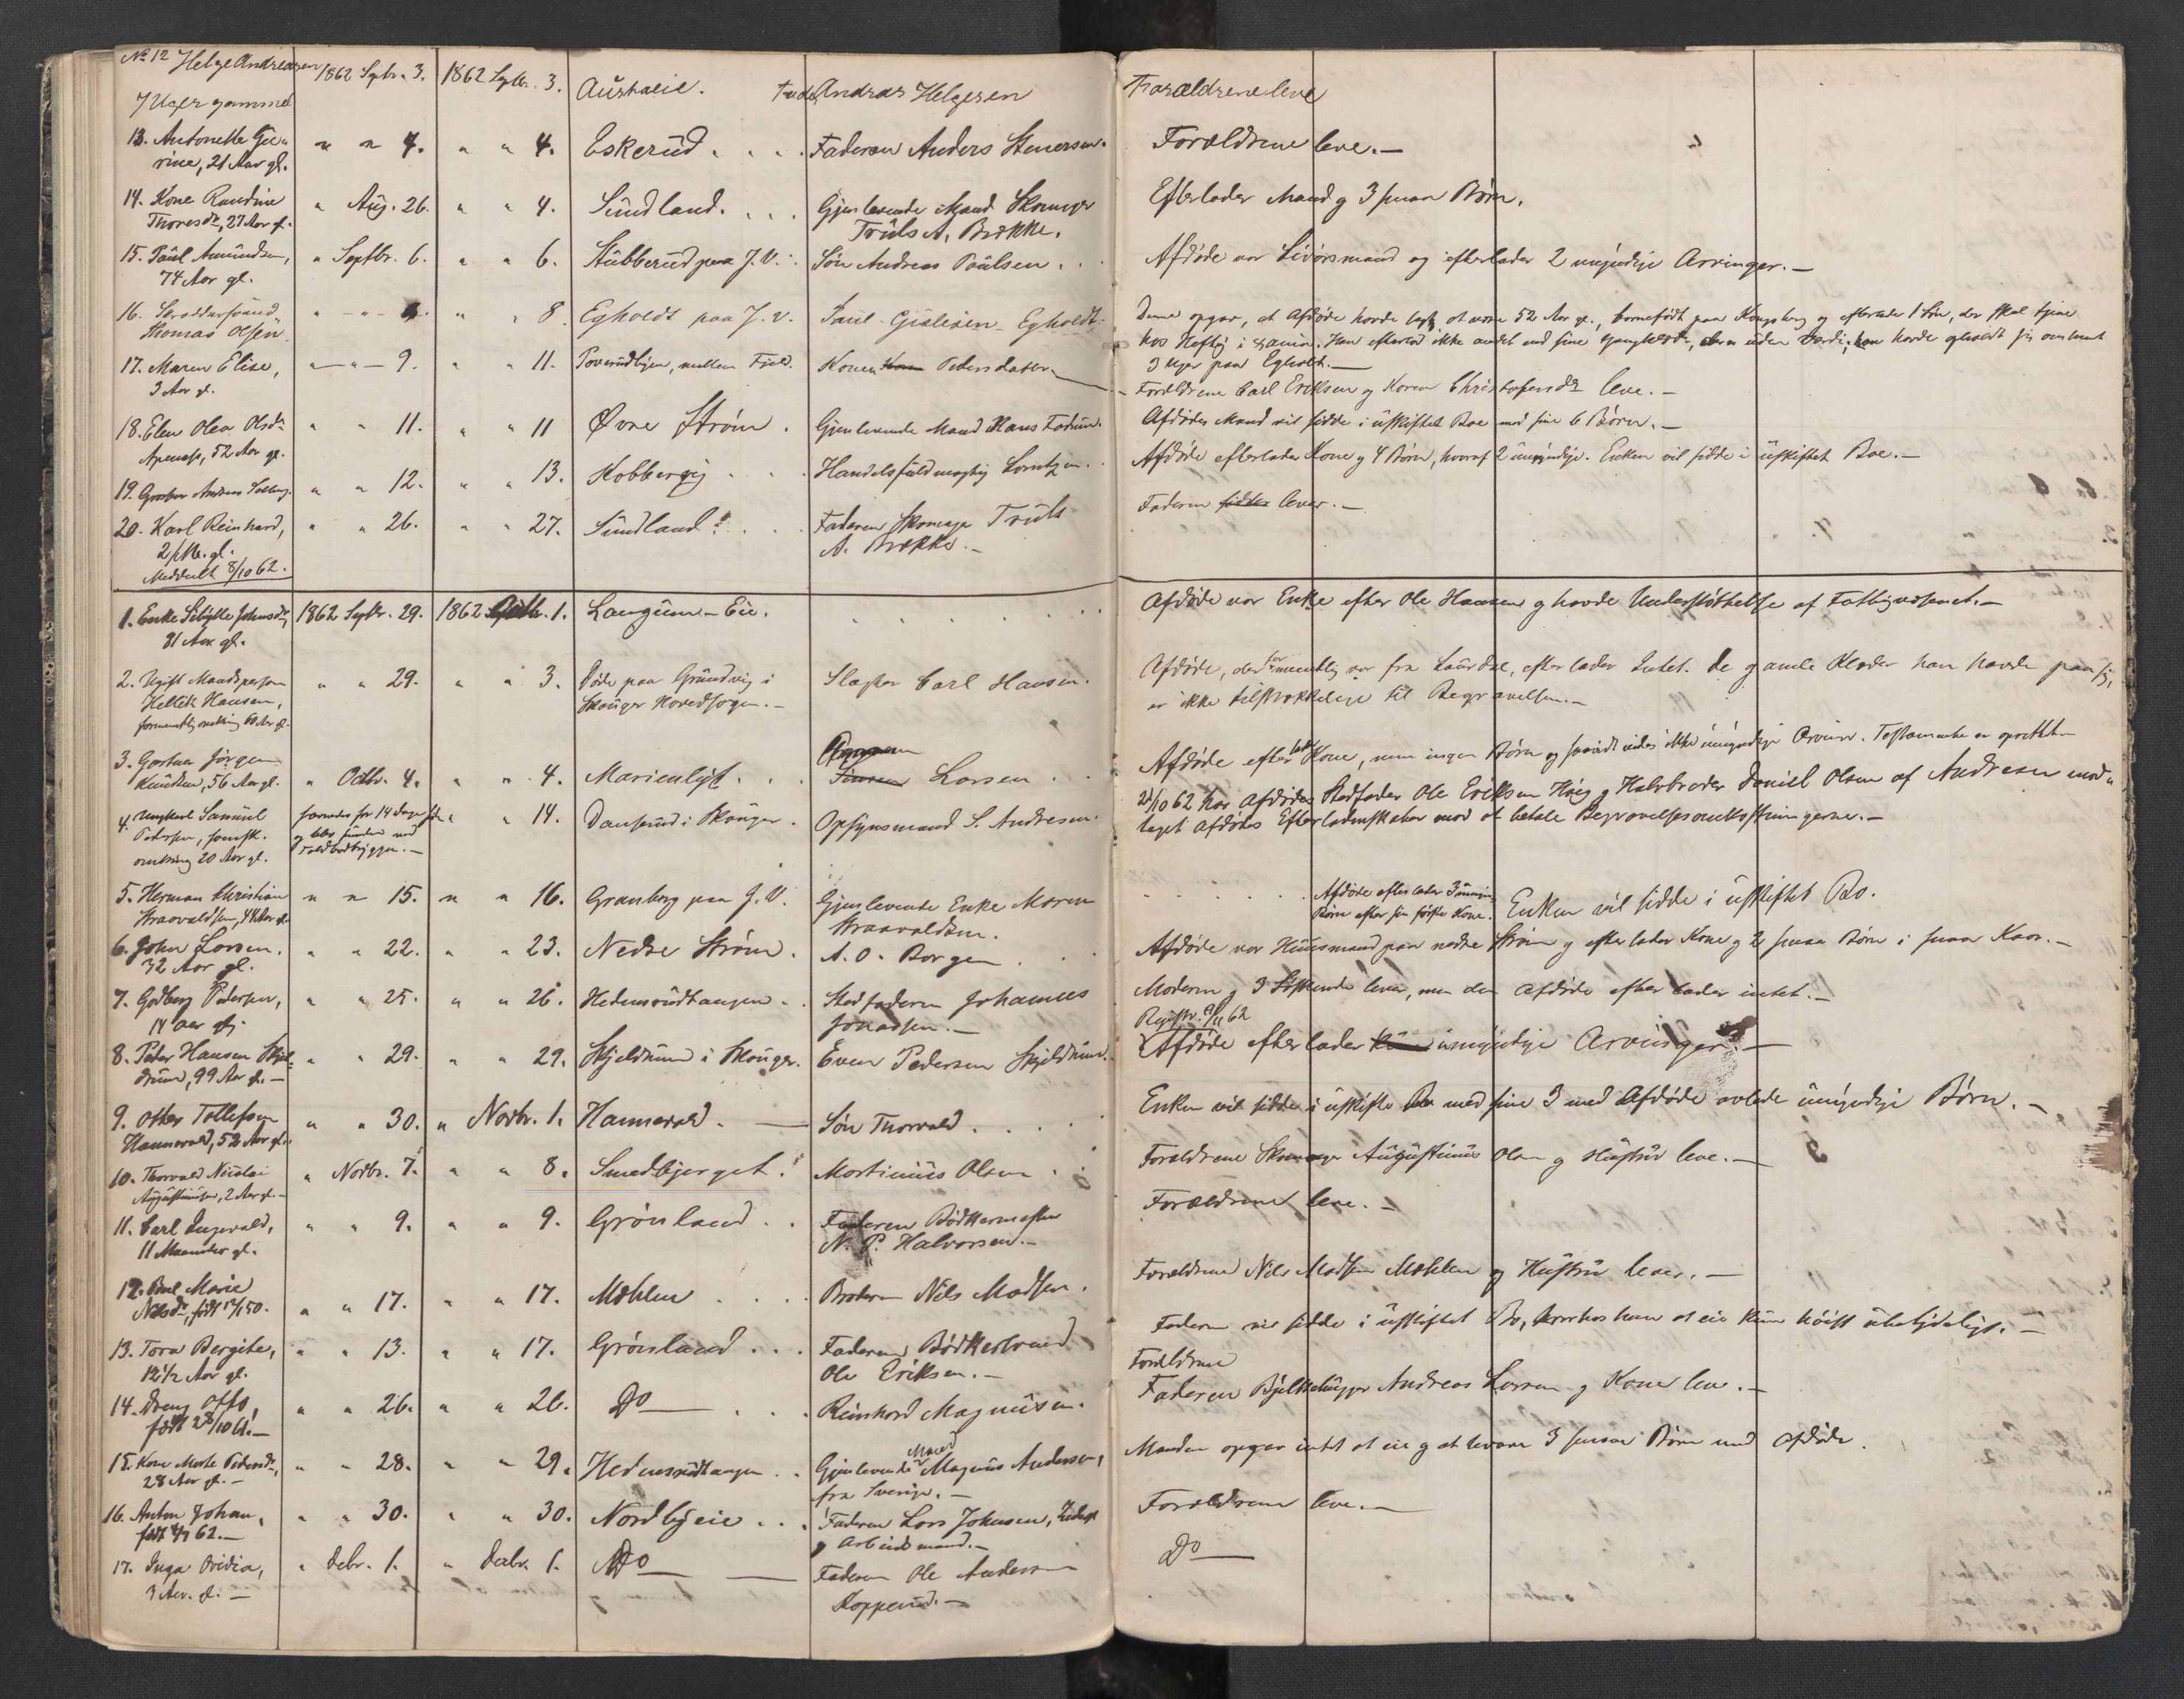 No 12 Helge Andreasen 1862 Septr. 3. 1862 Septbr. 3. Fader Andreas Helgesen Forældrene leve
7 Uger gammel
13. Antonette " " 4. " " 4. Eskerud . . . Faderen Anders Stenersen. Forældrene leve.—
rine, 21 Aar gl.
14. Kone Randine " Aug. 26. " " 4. Sundland. . . Gjenlevende Mand Skomager Efterlader Mand og 3 smaa Børn.
Thoresdr, 27 Aar gl. Truls A. Brække.
15. Paul Amundsen, " Septbr. 6. " " 6. Stubberud paa J. V. Søn Andreas Paulsen . . Afdøde var Livørsmand og efterlader 2 umyndige Arvinger.—
74 Aar gl.
16. " " " 8. Egholdt paa J. V. Egholdt. Denne opgav, at Afdøde havde sagt, at være 52 Aar gl., barnefødt paa Kongsberg og efterlader 1 Søn, der skal tjene
Thomas Olsen hos Heftÿ i Han efterlod ikke andet end sine Gangklæder, uden Værdi; han havde opholdt sig omtrent
3 Uger paa Egholdt.—
17. Maren Elise, " " 9. " " 11. mellem Fjeld. Konen Pedersdatter Forældrene Carl Eriksen og Karen Christophersdr leve.—
3 Aar gl.
18. Elen Olea Olsdr " " 11. " " 11 Øvre Strøm . Gjenlevende Mand Hans Fadum. Afdødes Mand vil sidde i uskiftet Boe med sine 6 Børn.—
52 Aar gl.
19. Anders Solberg. " " 12. " " 13. Kobbervig . . . Handelsfuldmægtig Lorntzen. Afdøde efterlader Kone og 4 Børn, hvoraf 2 umyndige. Enken vil sidde i uskiftet Boe.—
20. Karl Reinhard, " " 26. " " 27. Sundland . . . Faderen Skomager Truls Faderen lever.—
2 Md. gl. A. Brække.—
Meddeelt 8/10 62.
1. Enke Sibylle Johnsdr, 1862 Septbr. 29. 1862 Octbr. 1. Langum-Eie. Afdøde var Enke efter Ole Hansen og havde Understøttelse af Fattigvæsenet.—
81 Aar gl.
2. Ugift Mandsperson " " 29. " " 3. Døde paa Grundvig i Slagter Carl Hansen. Afdøde, der formentlig var fra Laurdal, efterlader Intet. De gamle Klæder han havde paa sig,
Hellik Hansen, Skouger Hovedsogn.— er ikke tilstrækkelige til Begravelsen.—
formentlig omkring 60 Aar gl.
3. Gartner Jørgen " Octbr. 4. " " 4. Marienlyst. . . Larsen . . Afdøde efterlader Kone, men ingen Børn og saavidt vides ikke umyndige Arvinger. Testamente er oprettet.—
Knudsen, 56 Aar gl.
4. Ungkarl Samuel savnedes for 14 Dage siden " 14. Danserud i Skouger. Opsynsmand S. Andresen. 21/10 62 har Afdødes Stedfader Ole Eriksen Høig og Halvbroder Daniel Olsen af Andresen mod-
Pedersen, svensk. og blev funden ved taget Afdødes Efterladenskaber mod at betale Begravelsesomkostningerne.—
omkring 20 Aar gl. Toldbodbryggen.—
5. Herman Christian " " 15. " " 16. Granberg paa J. V. Gjenlevende Enke Maren Afdøde efterlader 3 umyndige Enken vil sidde i uskiftet Bo.
Kraavaldsen, 44 Aar gl. Kraavaldsen. Børn efter sin første Kone.
6. John Larsen. " " 22. " " 23. Nedre Strøm. A. O. Borgen . . . Afdøde var Huusmand paa nedre Strøm og efterlader Kone og 2 smaa Børn i smaa Kaar.—
32 Aar gl.
7. Godberg Pedersen, " " 25. " " 26. Hedensrudtangen . . Stedfaderen Johannes Moderen og 3 Søskende lever, men den Afdøde efterlader intet.—
14 Aar gl. Jonassen.—
Registr. 62
8. Peder Hansen Skjel- " " 29. " " 29. Skjeldrum i Skouger. Even Pedersen Skjeldrum. Afdøde efterlader umyndige Arvinger.—
drum, 99 Aar gl.—
9. Otter Tollefsen " " 30. " Novbr. 1. Hannevold. — Søn Thorvald . . . . Enken vil sidde i uskiftet Bo med sine 3 med Afdøde avlede umyndige Børn.—
Hannevold, 52 Aar gl.
10. Thorvald Nicolai " Novbr. 7. " " 8. Smedbjerget. Martinius Olsen . . Forældrene Skomager Augustinus Olsen og Hustru leve.—
Augustinusen, 2 Aar gl.—
11. Carl Ingvald, " " 9. " " 9. Grønland . . Faderen Bødkermester Forældrene leve.—
11 Maaneder gl. N. P. Halvorsen.—
12. Marie " " 17. " " 17. Mæhlen . . . Broderen Nils Madsen. Forældrene Nils Madsen Mæhlen og Hustru lever.—
Nilsdr, født 50.
13. Tora Bergite, " " 13. " " 17. Grønland . . . Faderen Bødkersvend Faderen vil sidde i uskiftet Bo, hvorhos han at eie Kun høist ubetydeligt.—
12 1/2 Aar gl. Ole Eriksen.—
14. Dreng Otto, " " 26. " " 26. Do — . . . Reinhard Magnusen. Forældrene
født 28/10 61.— Faderen Andreas Larsen og Kone leve.—
15. Kone Marte Pedersdr, " " 28. " " 29. Hedensrudtangen . . Gjenlevende Mand Magnus Andersen, Manden opgav intet at eie og at have 3 smaa Børn med Afdøde.
28 Aar gl.— fra Sverige.—
16. Anton Johan, " " 30. " " 30. Nordbyeie . . . Faderen Lars Johnsen, Forældrene leve.—
født 62.— og Arbeidsmand.—
17. Inga Ovidia, " Decbr. 1. " Decbr. 1. Do — — Faderen Ole Andersen Do —
3 Aar. gl.— Kopperud.—